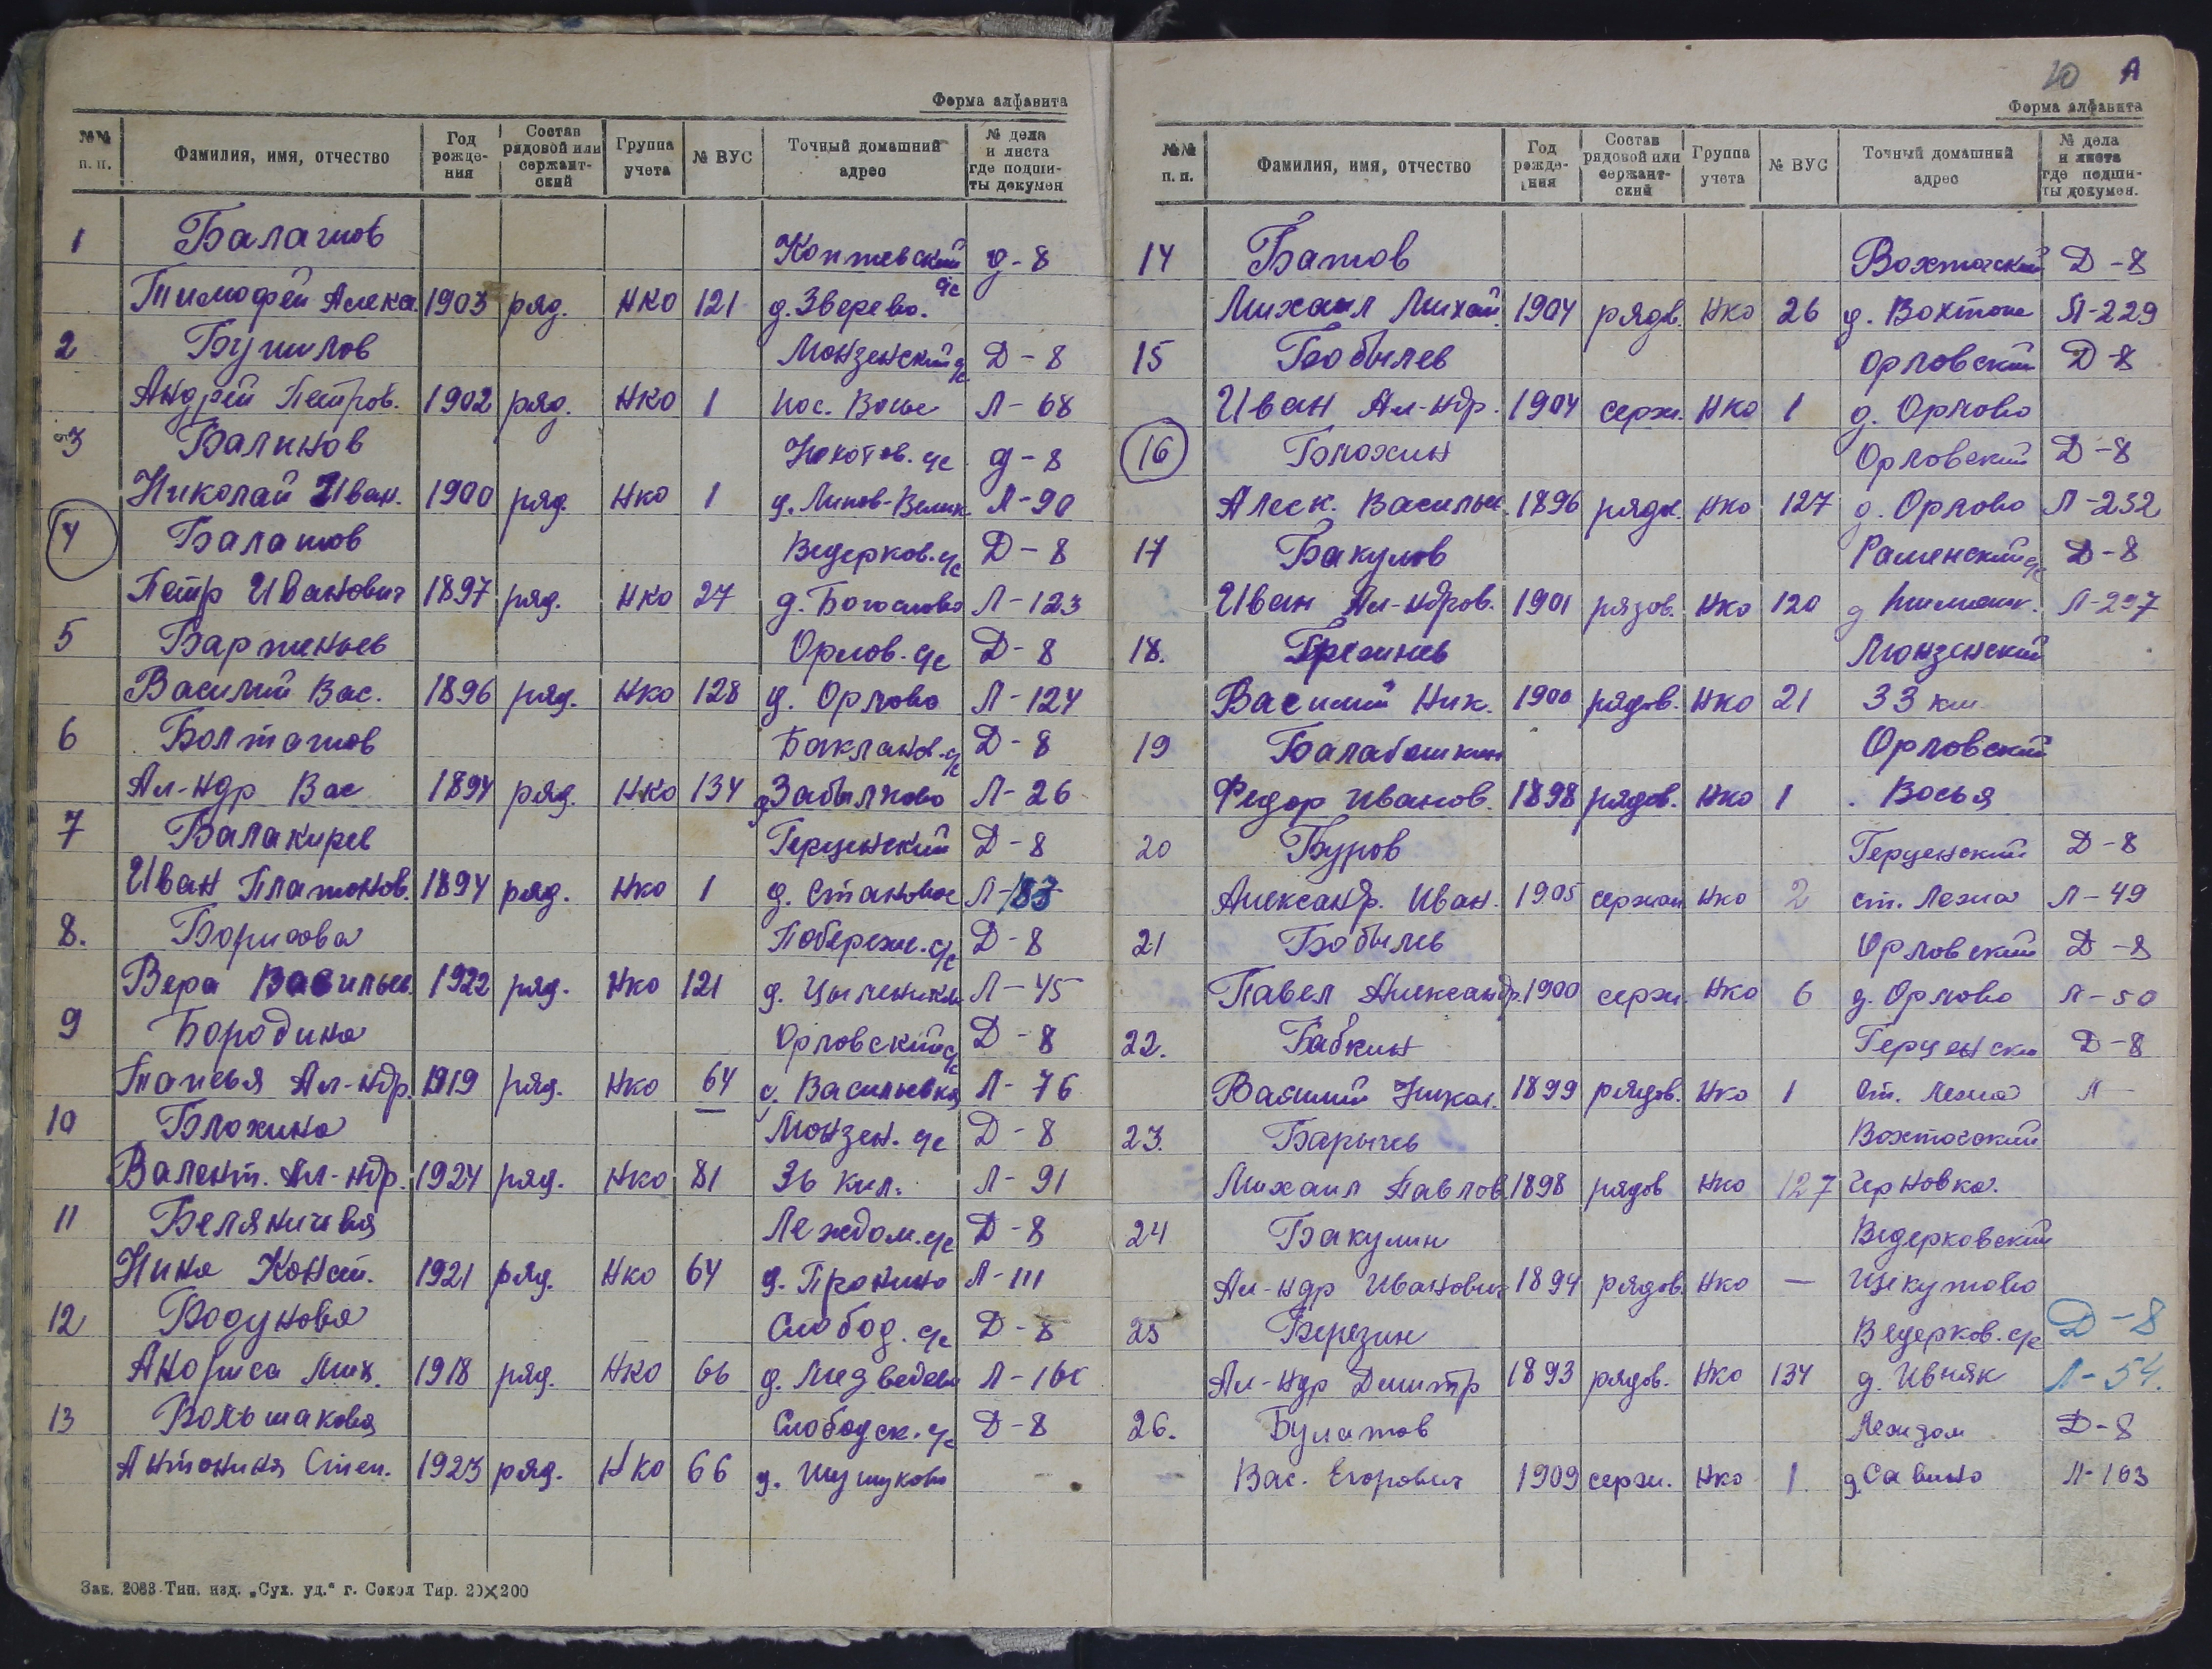 Форма алфавита
№№ п. п. Фамилия, имя, отчество Год рождения Состав рядовой или сержантский Группа учета № ВУС Точный домашний адрес № дела и листа где подшиты докумен
1 Балашов Коптевский с/с д-8
Тимофей Алекс. 1903 ряд. НКО 121 д. Зверево.
2 Бушилов Монзенский с/с Д-8
Андрей Петров. 1902 ряд. НКО 1 пос. Восье Л-68
3 Балинов с/с д-8
Николай Иван. 1900 ряд. НКО 1 д. Л-90
4 Балашов Ведерков. с/с Д-8
Петр Иванович 1897 ряд. НКО 27 д. Богослово Л-123
5 Вартеньев Орлов. с/с Д-8
Василий Вас. 1896 ряд. НКО 128 д. Орлово Л-124
6 Болташов Бакланов. с/с Д-8
Ал-ндр Вас 1894 ряд. НКО 134 д. Забылково Л-26
7 Балакирев Герценский Д-8
Иван Платонов. 1894 ряд. НКО 1 д. Становое Л-183
8. Борисова Побереж. с/с Д-8
Вера Васильев. 1922 ряд. НКО 121 д. Л-45
9 Бородина Орловский с/с Д-8
Таисья Ал-ндр. 1919 ряд. НКО 64 с. Васильевка Л-76
10 Блохина Монзен. с/с Д-8
Валент. Ал-ндр. 1924 ряд. НКО 81 36 кил. Л-91
11 Беляничева Леждом. с/с Д-8
Нина Конст. 1921 ряд. НКО 64 д. Пронино Л-111
12 Бодунова Слобод. с/с Д-8
Анфиса Мих. 1918 ряд. НКО 66 д. Медведево
13 Большакова Слободск. с/с Д-8
Антонина Степ. 1923 ряд. НКО 66 д.
Зак. 2083 Тип. изд. „Сух. уд.“ г. Сокол Тир. 20×200
10 А
Форма алфавита
№№ п. п. Фамилия, имя, отчество Год рождения Состав рядовой или сержантский Группа учета № ВУС Точный домашний адрес № дела и листа где подшиты докумен.
14 Батов Вохтогский Д-8
Михаил Михай. 1904 рядв. НКО 26 д. Вохтога Л-229
15 Бобылев Орловский Д-8
Иван Ал-ндр. 1904 серж. НКО 1 д. Орлово
16 Блохин Орловский Д-8
Алек. Васильев. 1896 рядв. НКО 127 д. Орлово Л-232
17 Бакулов Раменский с/с Д-8
Иван Ал-ндров. 1901 рядов. НКО 120 д Л-297
18. Монзенский
Василий Ник. 1900 рядов. НКО 21 33 км
19 Балабошкин Орловский
Федор Иванов. 1898 рядов. НКО 1 Восья
20 Буров Герценский Д-8
Александр. Иван. 1905 сержан НКО 2 ст. Лежа Л-49
21 Бобылев Орловский Д-8
Павел Александр. 1900 серж. НКО 6 д. Орлово Л-50
22. Бабкин Герценски Д-8
Василий Никол. 1899 рядов. НКО 1 ст. Лежа Л-
23. Барычев Вохтогский
Михаил Павлов 1898 рядов НКО 127 Черновка.
24 Бакулин Ведерковский
Ал-ндр Иванович 1894 рядов. НКО — Щекутово
25 Березин Ведерков. с/с Д-8
Ал-ндр Димитр 1893 рядов. НКО 134 д. Ивняк Л-54.
26. Булатов Леждом Д-8
Вас. Егорович 1909 серж. НКО 1. д. Савино Л-103